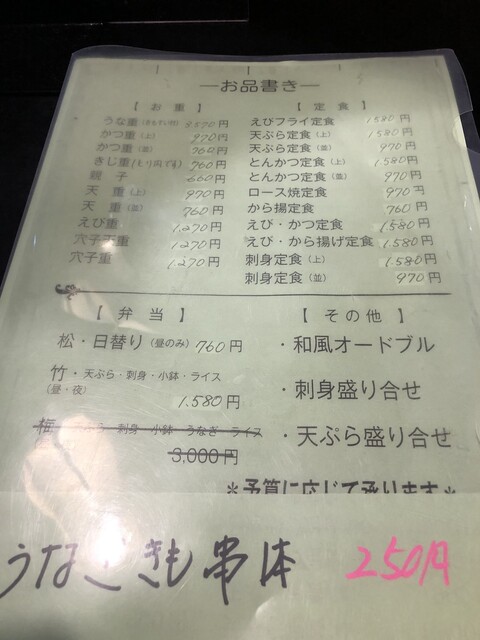 ―お品書き―
【 お 重 】
うな重（きもすい付） 9570円
かつ重（上） 970円
かつ重（並） 760円
きじ重（とり肉です） 760円
親 子 660円
天 重（上） 970円
天 重（並） 760円
えび重 1.270円
穴子天重 1.270円
穴子重 1.270円
【 定 食 】
えびフライ定食 1.580円
天ぷら定食（上） 1.580円
天ぷら定食（並） 970円
とんかつ定食（上） 1.580円
とんかつ定食（並） 970円
ロース焼定食 970円
から揚定食 760円
えび・かつ定食 1.580円
えび・から揚げ定食 1.580円
刺身定食（上） 1.580円
刺身定食（並） 970円
【 弁 当 】
松・日替り（昼のみ） 760円
竹・天ぷら・刺身・小鉢・ライス
（昼・夜）
1.580円
梅 天ぷら 刺身 小鉢 うなぎ ライス
3,000円
【 その他 】
・和風オードブル
・刺身盛り合せ
・天ぷら盛り合せ
＊予算に応じて承ります＊
うなぎきも串1本 250円